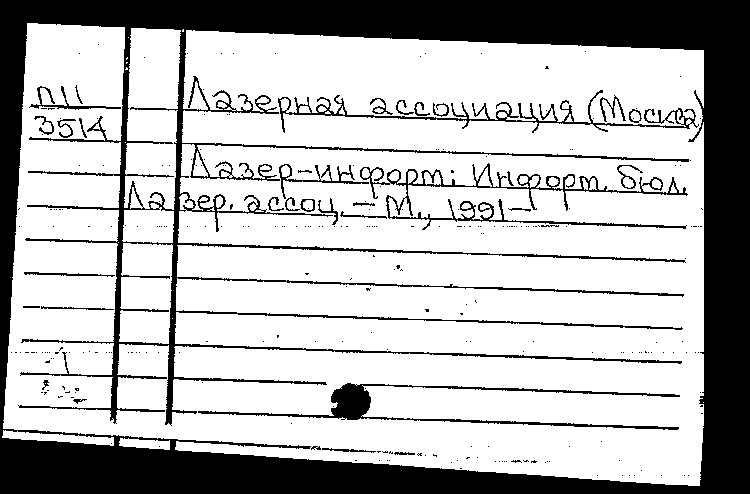 П11
3514
Лазерная ассоциация (Москва)
Лазер-информ: Информ. бюл.
Лазер. ассоц. - М., 1991-